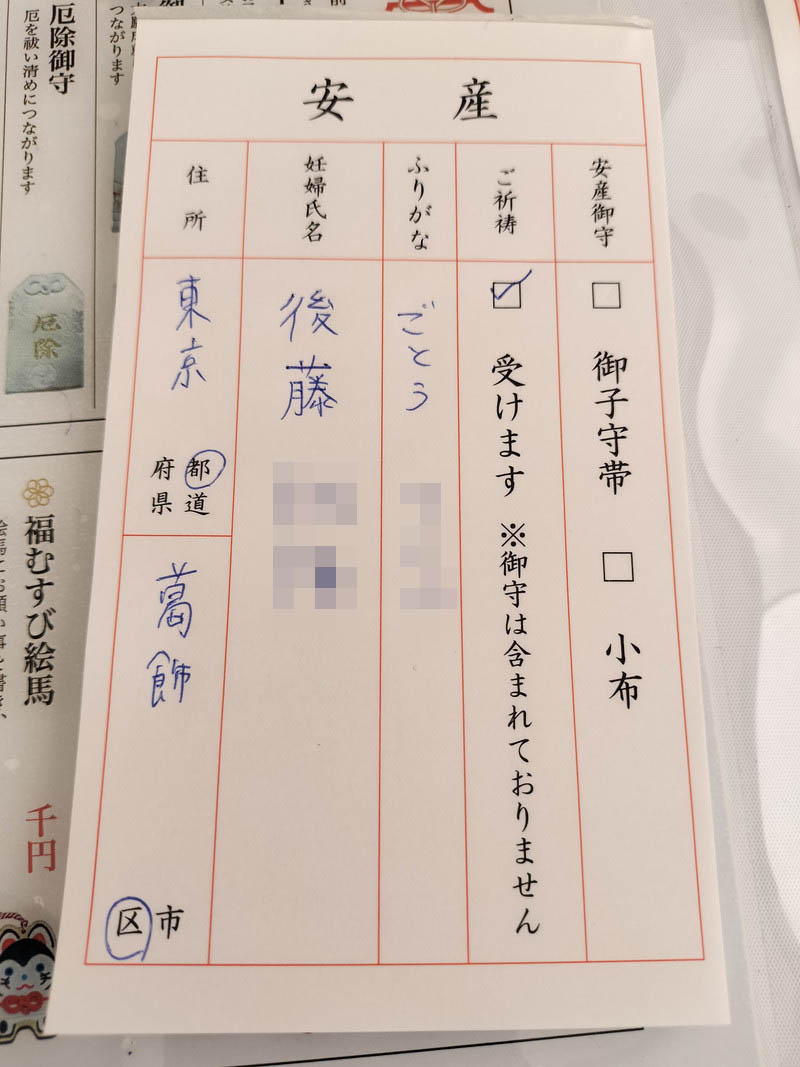 安産
安産御守
□ 御子守帯 □ 小布
ご祈祷
☑ 受けます ※御守は含まれておりません
ふりがな
ごとう
妊婦氏名
後藤
住所
東京
都道
府県
葛飾
市
区
厄除御守
厄を祓い清めにつながります
つながります
厄除
福むすび絵馬
千円